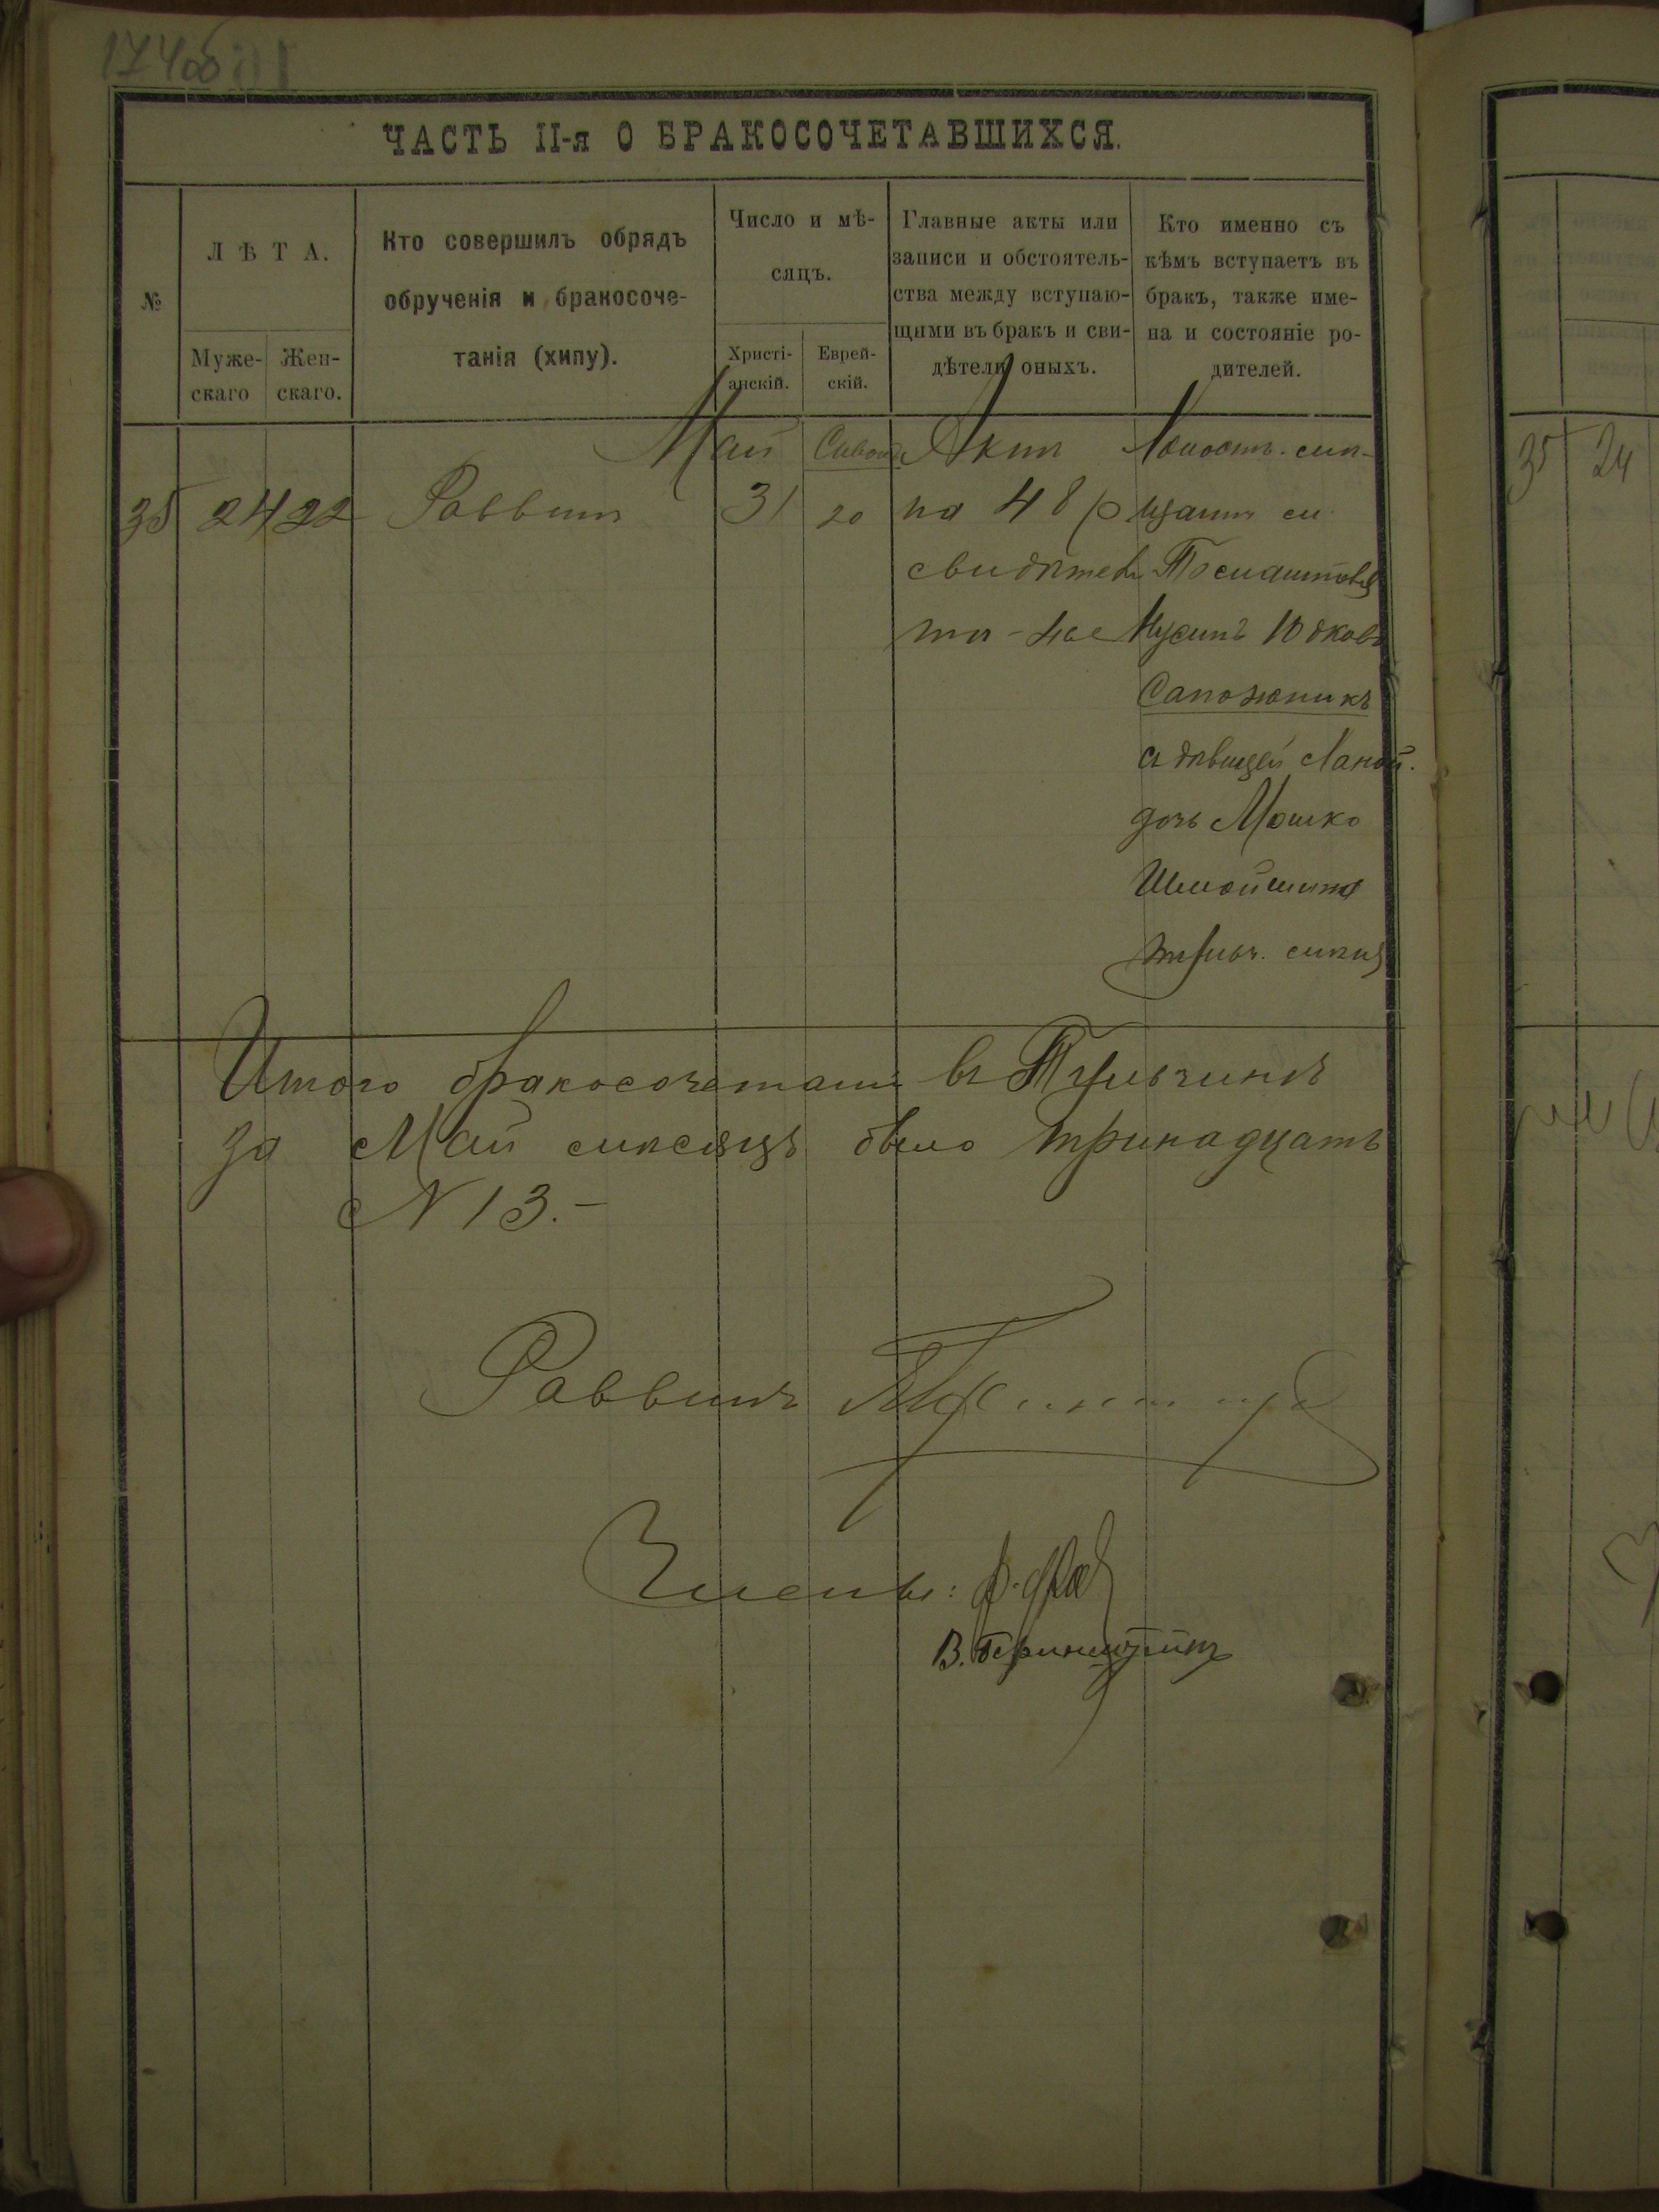 174об
ЧАСТЬ II-я О БРАКОСОЧЕТАВШИХСЯ.
№
ЛѢТА.
Муже-
скаго
Жен-
скаго.
Кто совершилъ обрядъ
обрученія и бракосоче-
танія (хипу).
Число и мѣ-
сяцъ.
Христі-
анскій.
Еврей-
скій.
Главные акты или
записи и обстоятель-
ства между вступаю-
щими въ бракъ и сви-
дѣтели оныхъ.
Кто именно съ
кѣмъ вступаетъ въ
бракъ, также име-
на и состояніе ро-
дителей.
35
24
22
Раввинъ
Май
31
Сивонъ
20
Актъ
на 48 р
свидѣтели
тѣ-же
Холост. мѣ-
щанин
Нусинъ Юдковъ
Сапожникъ
съ дѣвицей
дочь Мошко
тульч. мѣщ
Итого бракосочетаній въ Тульчинѣ
за Май мѣсяцъ было тринадцать
N 13.-
Раввинъ
Члены:
В. Беринштейнъ
35
24